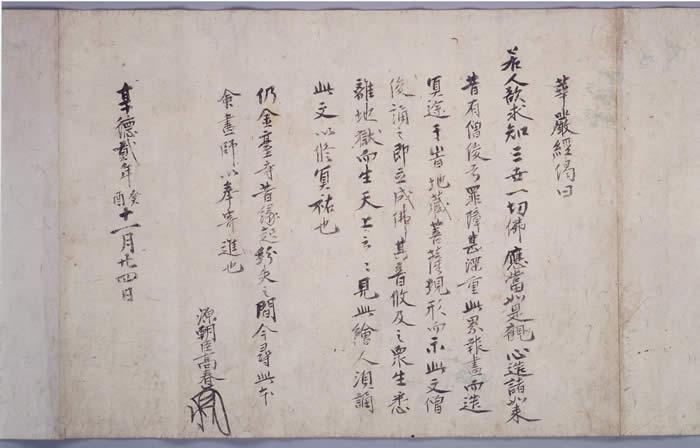 華嚴經偈曰
若人欲求知三世一切佛應當如是觀心造諸如来
昔有僧俊云罪障甚深重此累報盡而造
冥途于當地藏菩薩現形而示此文僧
俊誦之即立成佛其音所及之衆生悉
離地獄而生天上云々見此繪人須誦
此文以修冥祐也
仍金臺寺昔縁起紛失之間今尋此本
命畫師以奉寄進也
源朝臣高春
享德貳年癸酉十一月廿四日